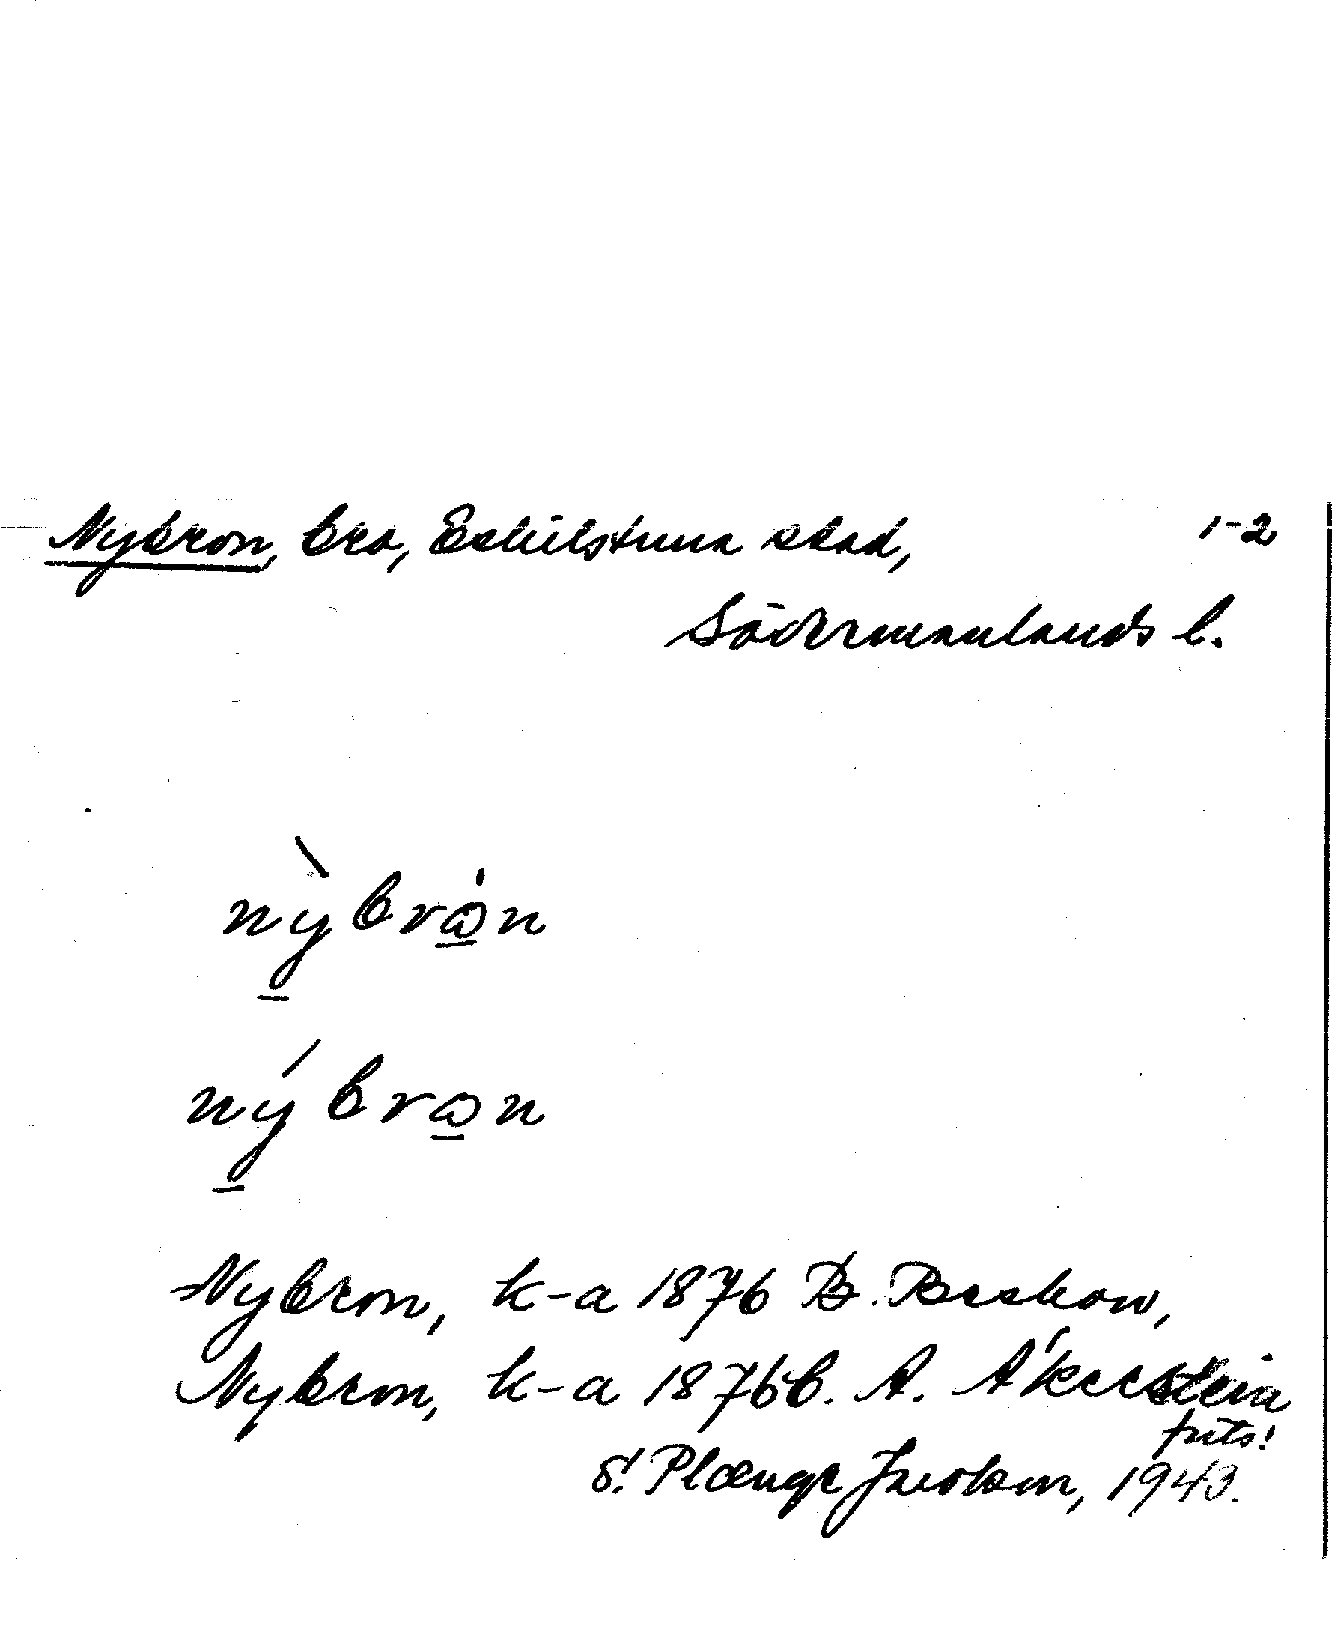 Nybron, bro, Eskilstuna stad, 1-2
Södermanlands l.
nỳbrω̲n
nýbrω̲n
Nybron, k-a 1876 B. Beskow,
Nybron, k-a 1876 b. A. Åkerstein
forts!
S! Plænge Jacobson, 1943.